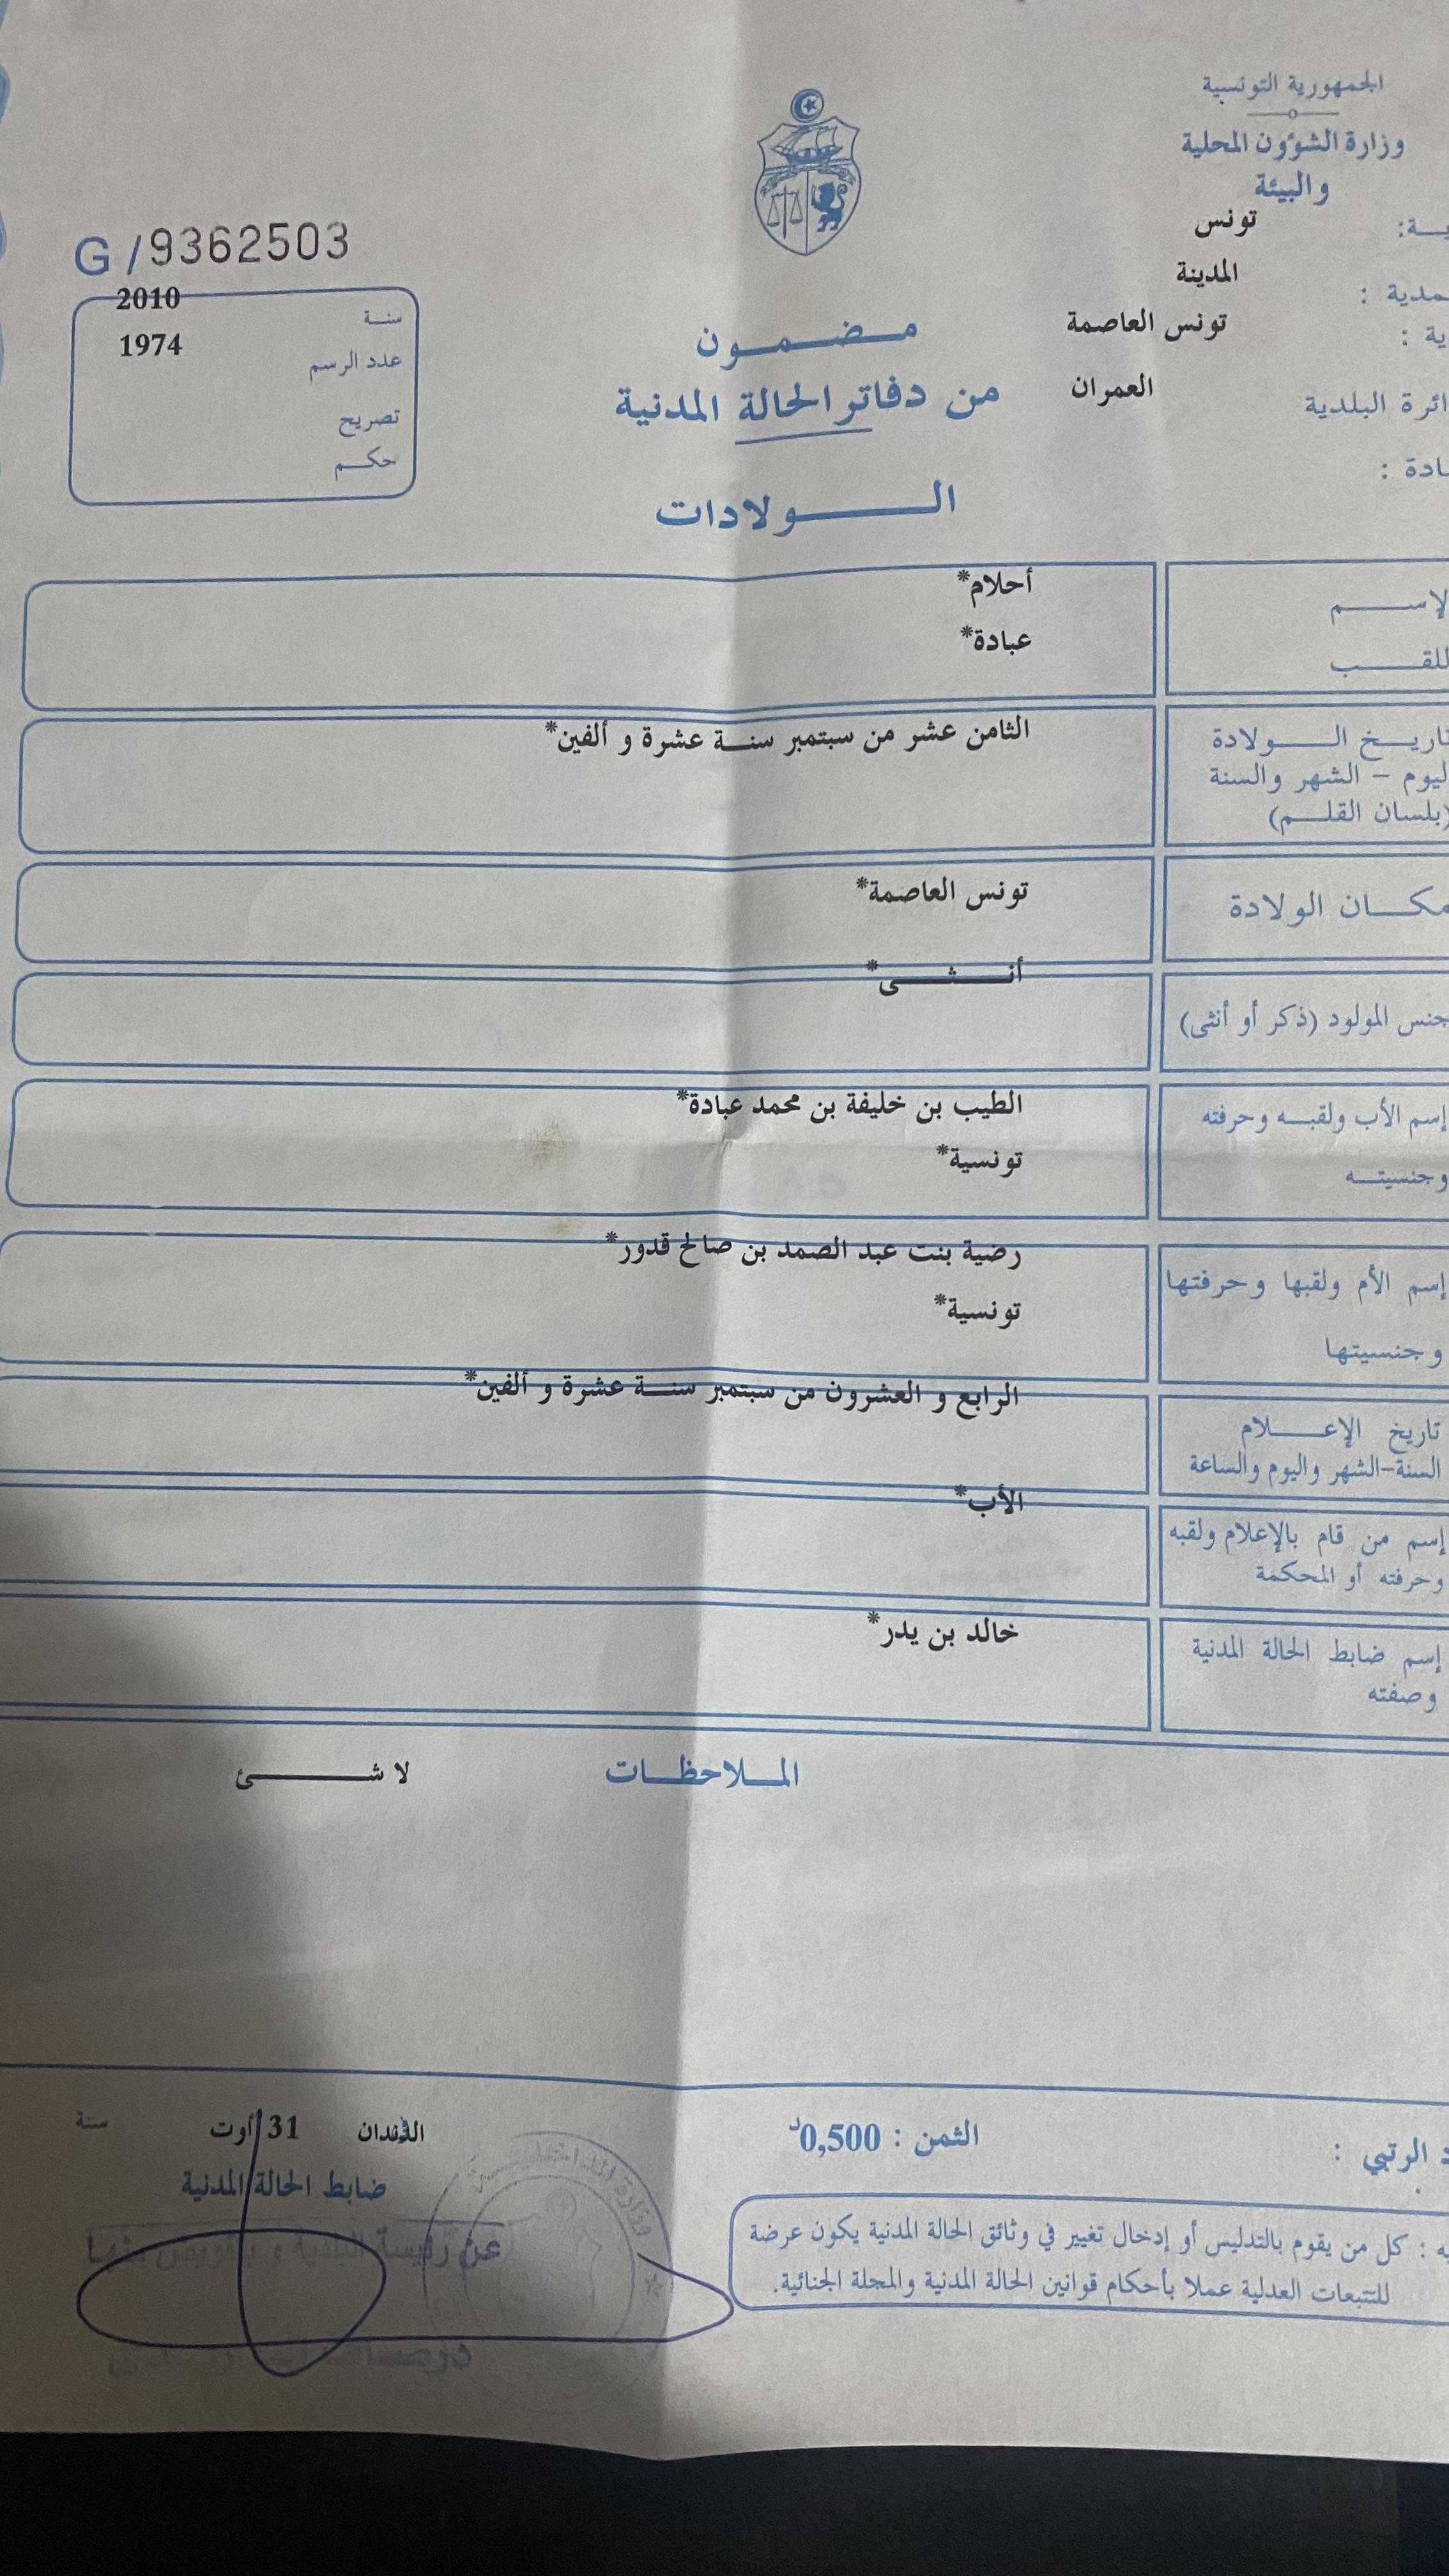 الجمهورية التونسية
وزارة الشؤون المحلية
والبيئة
تونس
المدينة
تونس العاصمة
العمران
البلدية
G / 9362503
سنة 2010
عدد الرسم 1974
تصريح
حكم
مضمون
من دفاتر الحالة المدنية
الولادات
الإسم أحلام*
اللقب عبادة*
تاريخ الولادة الثامن عشر من سبتمبر سنة عشرة و ألفين*
اليوم - الشهر والسنة
(بلسان القلم)
مكان الولادة تونس العاصمة*
جنس المولود (ذكر أو أنثى) أنثى*
إسم الأب ولقبه وحرفته الطيب بن خليفة بن محمد عبادة*
وجنسيته تونسية*
إسم الأم ولقبها وحرفتها رضية بنت عبد الصمد بن صالح قدور*
وجنسيتها تونسية*
تاريخ الإعلام الرابع و العشرون من سبتمبر سنة عشرة و ألفين*
السنة-الشهر واليوم والساعة
إسم من قام بالإعلام ولقبه الأب*
وحرفته أو المحكمة
إسم ضابط الحالة المدنية خالد بن يدر*
وصفته
الملاحظات لا شئ
الرتبي :
الثمن : 0,500د
31 أوت سنة
ضابط الحالة المدنية
عن رئيسة البلدية و بتفويض منها
: كل من يقوم بالتدليس أو إدخال تغيير في وثائق الحالة المدنية يكون عرضة
للتتبعات العدلية عملا بأحكام قوانين الحالة المدنية والمجلة الجنائية.